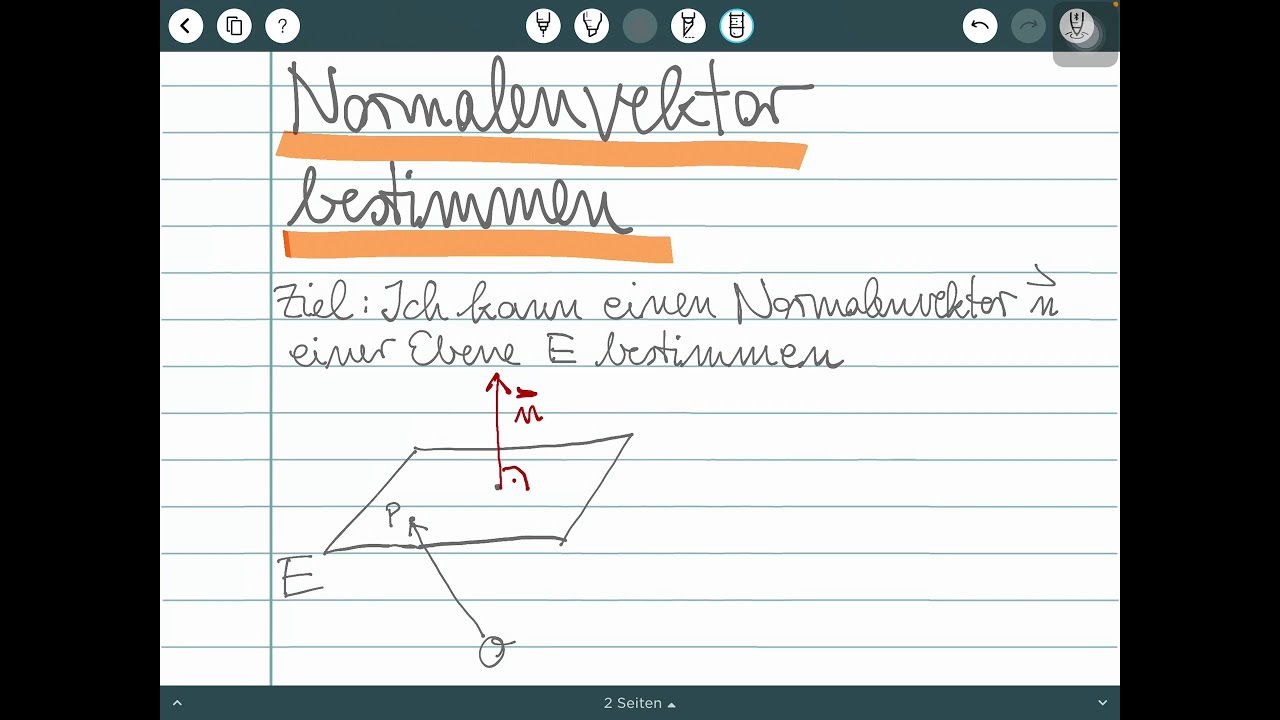 ?
Normalenvektor
bestimmen
Ziel: Ich kann einen Normalenvektor n⃗
einer Ebene E bestimmen
n⃗
P
E
O
2 Seiten